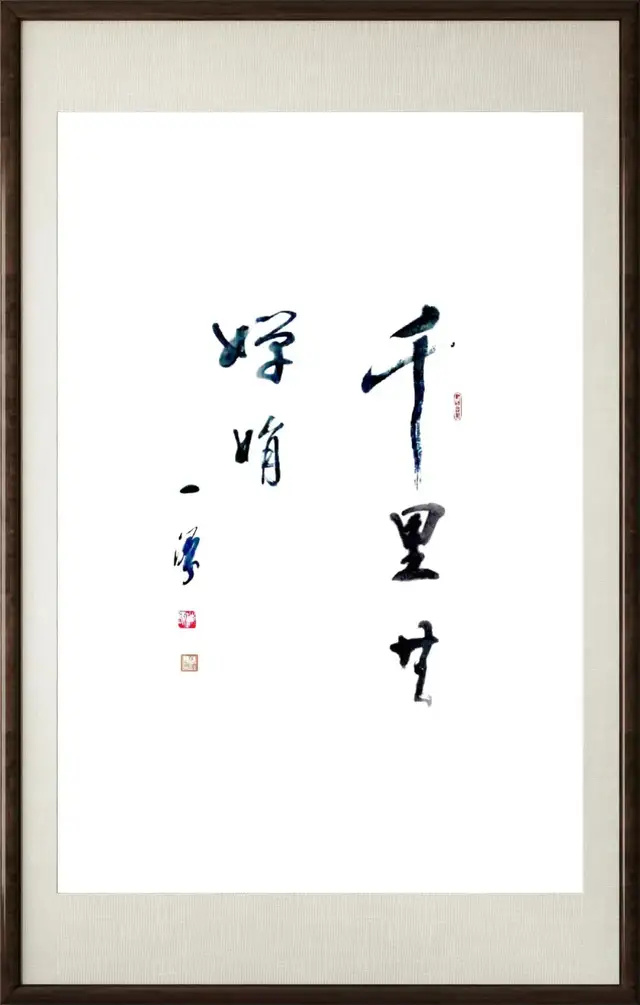 千里共
婵娟
一